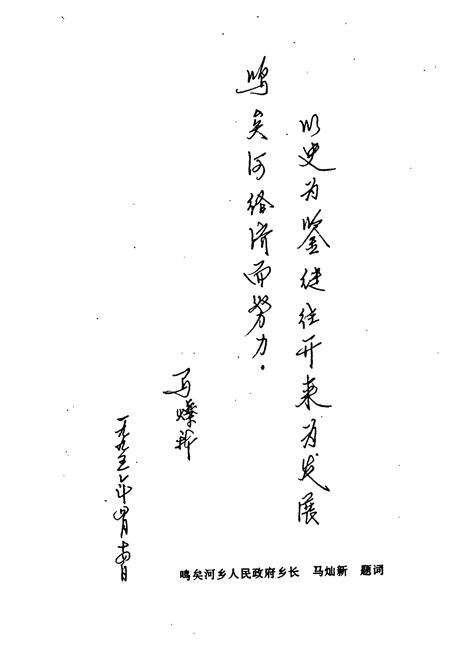 以史为鉴继往开来为发展
鸣矣河经济而努力。
马灿新
一九九五年
鸣矣河乡人民政府乡长 马灿新 题词